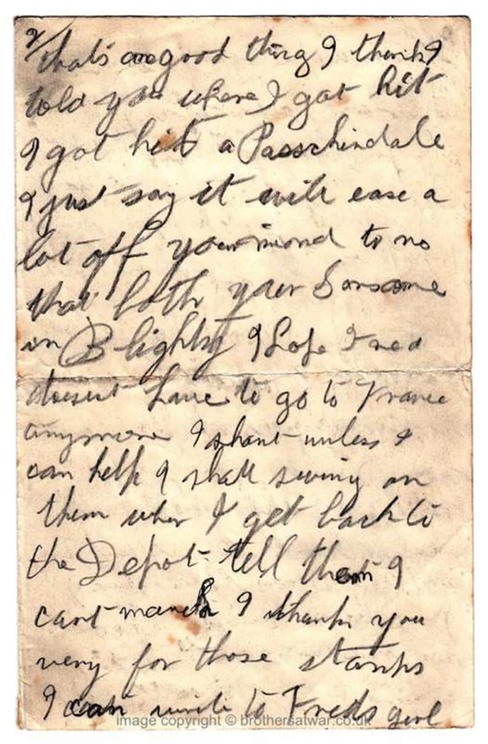 2/
that's one good thing I think I
told you where I got hit
I got hit a Passchindale
I just say it will ease a
lot off your mind to no
that both your Sons are
in Blighty I Hope Fred
doesent have to go to France
anymore I shant unless I
can help I shall swing on
them when I get back to
the Depot tell them I
cant march I thank you
very for those stamps
I can write to Freds girl
image copyright © brothersatwar.co.uk